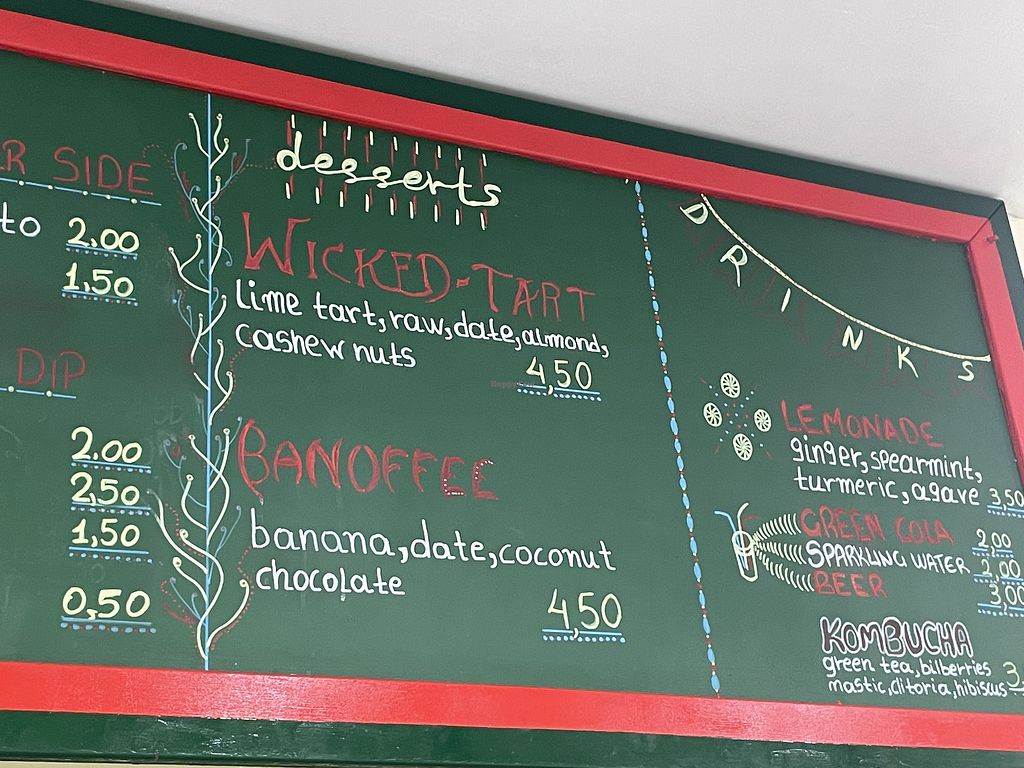 R SIDE
to 2.00
1.50
DIP
2.00
2,50
1,50
0,50
desserts
WICKED-TART
lime tart, raw, date, almond,
cashew nuts
4,50
BANOFFEE
banana, date, coconut
chocolate
4,50
DRINKS
LEMONADE
ginger, spearmint,
turmeric, agave 3,50
GREEN COLA 2,00
SPARKLING WATER 2,00
BEER 3,00
KOMBUCHA
green tea, bilberries
mastic, clitoria, hibiscus 3,